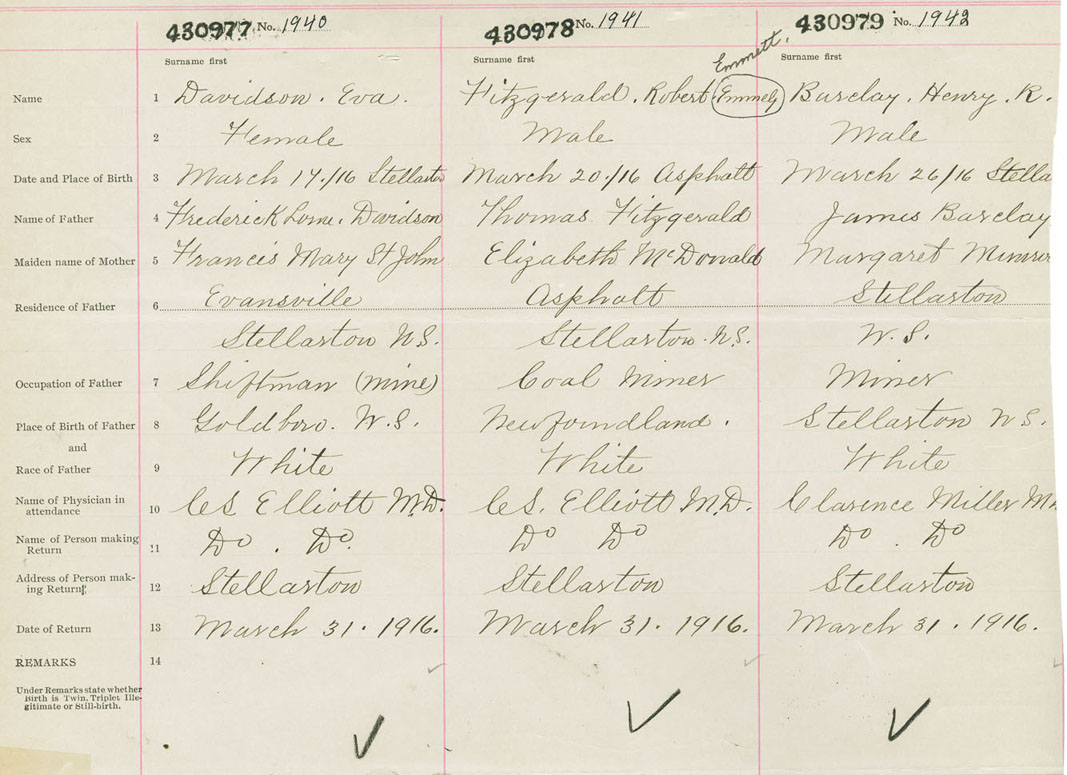 430977 No. 1940 430978 No. 1941 430979 No. 1942
Emmett.
Surname first Surname first Surname first
Name 1 Davidson. Eva. Fitzgerald, Robert Emmely Barclay, Henry. R.
Sex 2 Female Male Male
Date and Place of Birth 3 March 17./16 Stellarton March 20./16 Asphalt March 26/16 Stella
Name of Father 4 Frederick Lorne. Davidson Thomas Fitzgerald James Barclay
Maiden name of Mother 5 Francis Mary St John Elizabeth McDonald Margaret
Residence of Father 6 Evansville Asphalt Stellarton
Stellarton N.S. Stellarton. N.S. N.S.
Occupation of Father 7 Shiftman (mine) Coal Miner Miner
Place of Birth of Father 8 Goldboro. N.S. Newfoundland. Stellarton N.S.
and
Race of Father 9 White White White
Name of Physician in
attendance 10 CS Elliott M.D. CS. Elliott M.D. Clarence Miller M
Name of Person making
Return 11 Do. Do. Do Do Do. Do
Address of Person mak-
ing Return 12 Stellarton Stellarton Stellarton
Date of Return 13 March 31. 1916. March 31. 1916. March 31. 1916.
REMARKS 14
Under Remarks state whether
Birth is Twin, Triplet, Ille-
gitimate or Still-birth.